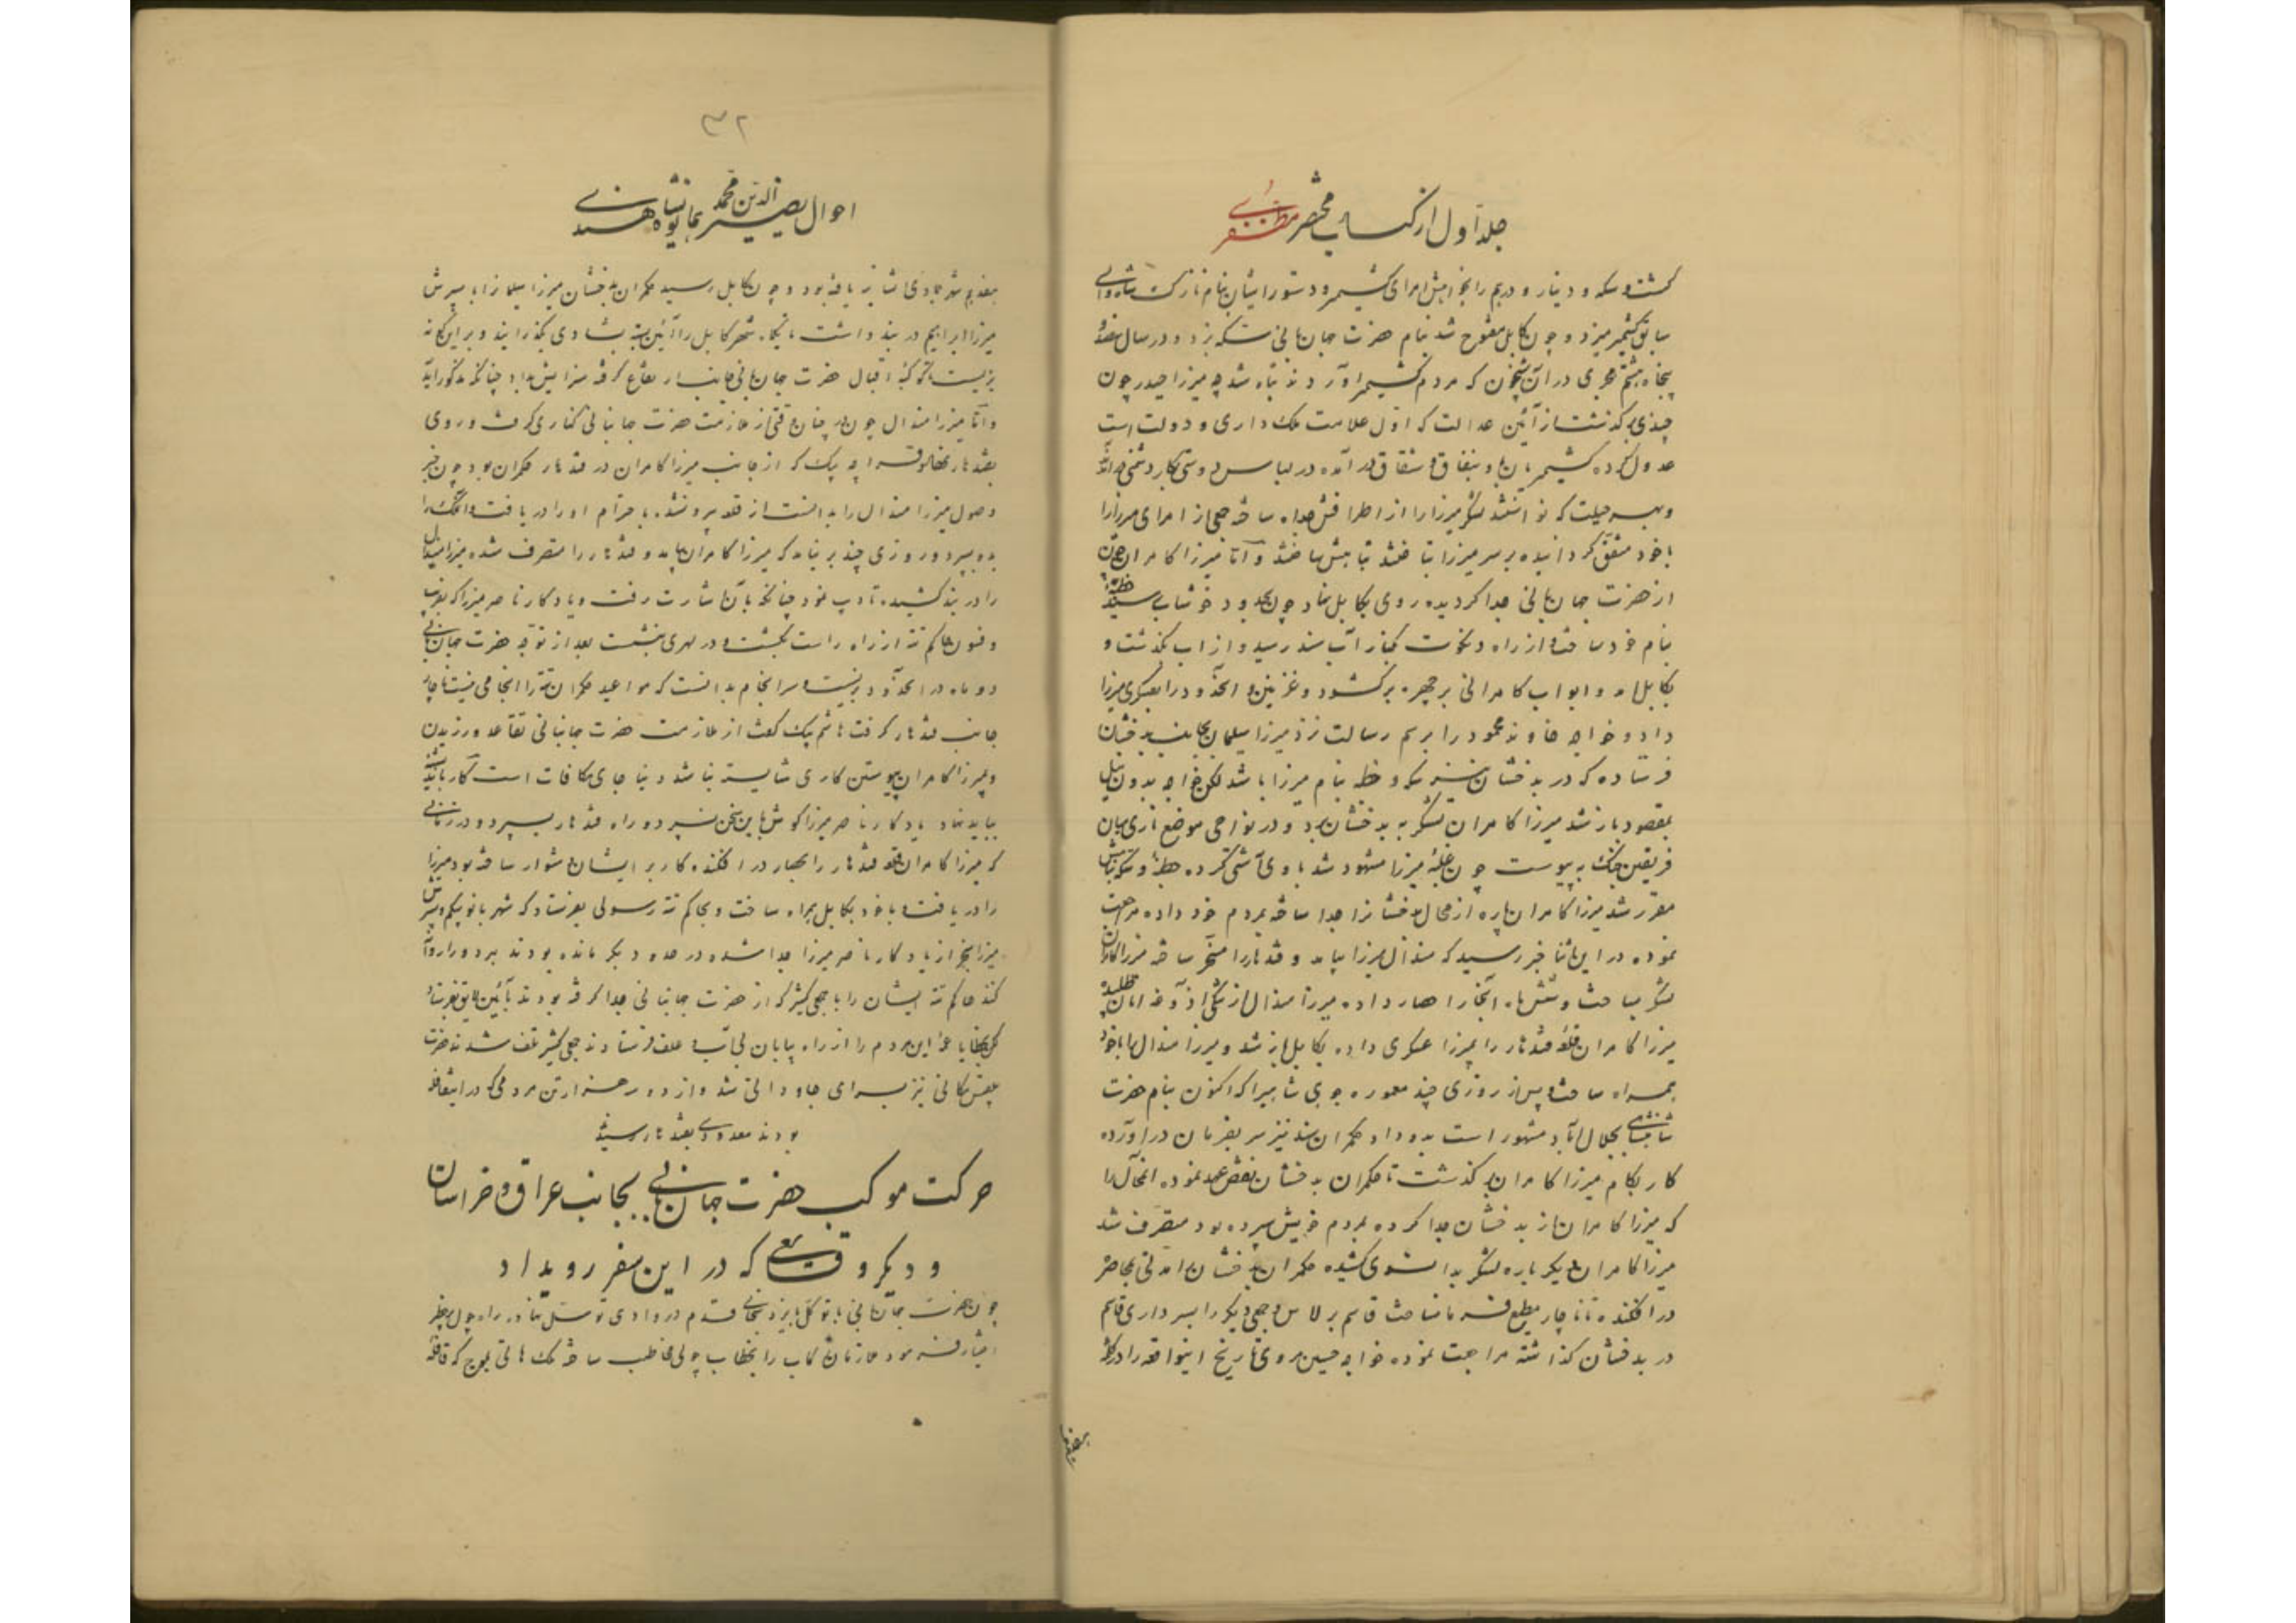 جلد اول از کتاب مختصر مظفری
گشت و سکه و دینار و درهم را بخواهش امرای کشمیر و دستور ایشان بنام نازک شاه والی
سابق کشمیر میزد و چون کابل مفتوح شد بنام حضرت جهانبانی سکه بزد و در سال نهصد و
پنجاه و هشتم هجری در آن شبخون که مردم کشمیر آوردند تباه شد چه میرزا حیدر چون
چندی بگذشت از آئین عدالت که اول علامت ملک داری و دولت است
عدول کرده کشمیریان با وی بنفاق و شقاق در آمده در لباس دوستی کار دشنمی راندند
و بهر حیلت که توانستند لشکر میرزا را از اطرافش جدا ساخته جمعی از امرای میرزا را
با خود متفق گردانیده بر سر میرزا بتاختند تباهش ساختند و اما میرزا کامران چون
از حضرت جهانبانی جدا گردیده روی بکابل نهاد چون بحدود خوشاب رسید خطبه
بنام خود ساخت و از راه دنکوت بکنار آب سند رسید و از آب بگذشت و
بکابل آمد و ابواب کامرانی بر چهره برگشود و غزنین و آنحدود را بعسکری میرزا
داد و خواجه خاوند محمود را برسم رسالت نزد میرزا سلیمان بجانب بدخشان
فرستاده که در بدخشان نیز سکه و خطبه بنام میرزا باشد لکن خواجه بدون نیل
بمقصود باز شد میرزا کامران لشکر به بدخشان برد و در نواحی موضع تاری میان
فریقین جنک به پیوست چون غلبه میرزا مشهود شد با وی آشتی کرده خطبه و سکه بنامش
مقرر شد میرزا کامران پاره از محال بدخشانرا جدا ساخته بمردم خود داده مراجعت
نموده در این اثنا خبر رسید که هندال میرزا بیامد و قندهار را مسخر ساخته میرزا کامران
لشکر بساخت و شش ماه آنجا را حصار داده میرزا هندال از تنگی آذوغه امان طلبیده
میرزا کامران قلعه قندهار را بمیرزا عسکری داده بکابل باز شد و میرزا هندال را با خود
همراه ساخت و پس از روزی چند معموره جوی شاهیرا که اکنون بنام حضرت
شاهنشاهی بجلال آباد مشهور است بدو داد و حکمران سند نیز سر بفرمان در آورده
کار بکام میرزا کامران بگذشت تا حکمران بدخشان نقض عهد نموده آنمحال را
که میرزا کامران از بدخشان جدا کرده بمردم خویش سپرده بود متصرف شد
میرزا کامران دیگر باره لشکر بدانسوی کشیده حکمران بدخشان را مدتی بمحاصره
در افکنده تا ناچار مطیع فرمان ساخت قاسم برلاس و جمعی دیگر را بسرداری قاسم
در بدخشان گذاشته مراجعت نموده خواجه حسین مروی تاریخ اینواقعه را در کلمه
۳۲
احوال نصیر الدین محمد همایون شاه هندی
میرزا ابراهیم در بند داشت یکماه شهر کابل را آئین بسته بشادی بگذرانید و بر اینگونه
بزیست تا کوکبه اقبال حضرت جهانبانی بدانسان ارتفاع گرفته سزایش بداد چنانکه مذکور آید
و اما میرزا هندال چون در چنان وقتی از ملازمت حضرت جهانبانی کناری گرفت و روی
بقندهار نهاد قراچه بیک که از جانب میرزا کامران در قندهار حکمران بود چون خبر
وصول میرزا هندال را بدانست از قلعه بیرون شد باحترام او را دریافت و آن ملک را
بدو سپرد و روزی چند بر نیامد که میرزا کامران بیامد و قندهار را متصرف شده میرزا هندال
را در بند کشیده تادیب نمود چنانکه بآن اشارت رفت و یادگار ناصر میرزا که بفریب
و فسون حاکم تته از راه راست بگشت و در لهری بنشست بعد از توجه حضرت جهانبانی
دو ماه در آنحدود بزیست و سر انجام بدانست که مواعید حکمران تته را انجامی نیست ناچار
جانب قندهار گرفت هاشم بیک گفت از ملازمت حضرت جهانبانی تقاعد ورزیدن
و بمیرزا کامران پیوستن کاری شایسته نباشد دنیا جای مکافات است کار باید
بباید نهاد یادگار ناصر میرزا گوش باین سخن نسپرده راه قندهار بسپرد و در زمانی
که میرزا کامران قلعه قندهار را بحصار در افکنده کار بر ایشان دشوار ساخته بود میرزا
را دریافت و با خود بکابل همراه ساخت و بحاکم تته رسولی بفرستاد که شهر بانو بیگم و پسرش
میرزا سنجر از یادگار ناصر میرزا جدا شده در حدود بکر مانده بودند بدو روان
کند حاکم تته ایشان را با جمعی کثیر که از حضرت جهانبانی جدا گرفته بودند بآئین لایق بفرستاد
لکن بخطا یا عمدا این مردم را از راه بیابان بی آب و علف فرستادند جمعی کثیر تلف شدند حضرت
بلقیس مکانی نیز بسرای جاودانی شد و از دو سه هزار تن مردمی که در این قافله
بودند معدودی بقندهار رسید
حرکت موکب حضرت جهانبانی بجانب عراق و خراسان
و دیگر وقایعی که در این سفر رویداد
چون حضرت جهانبانی با توکل بایزد سبحانی قدم در وادی توسل نهاد در راه چول پر خطر
اختیار فرمود ملازمان رکاب را بخطاب چولی مخاطب ساخته ملک هاتی بلوچ که قافله